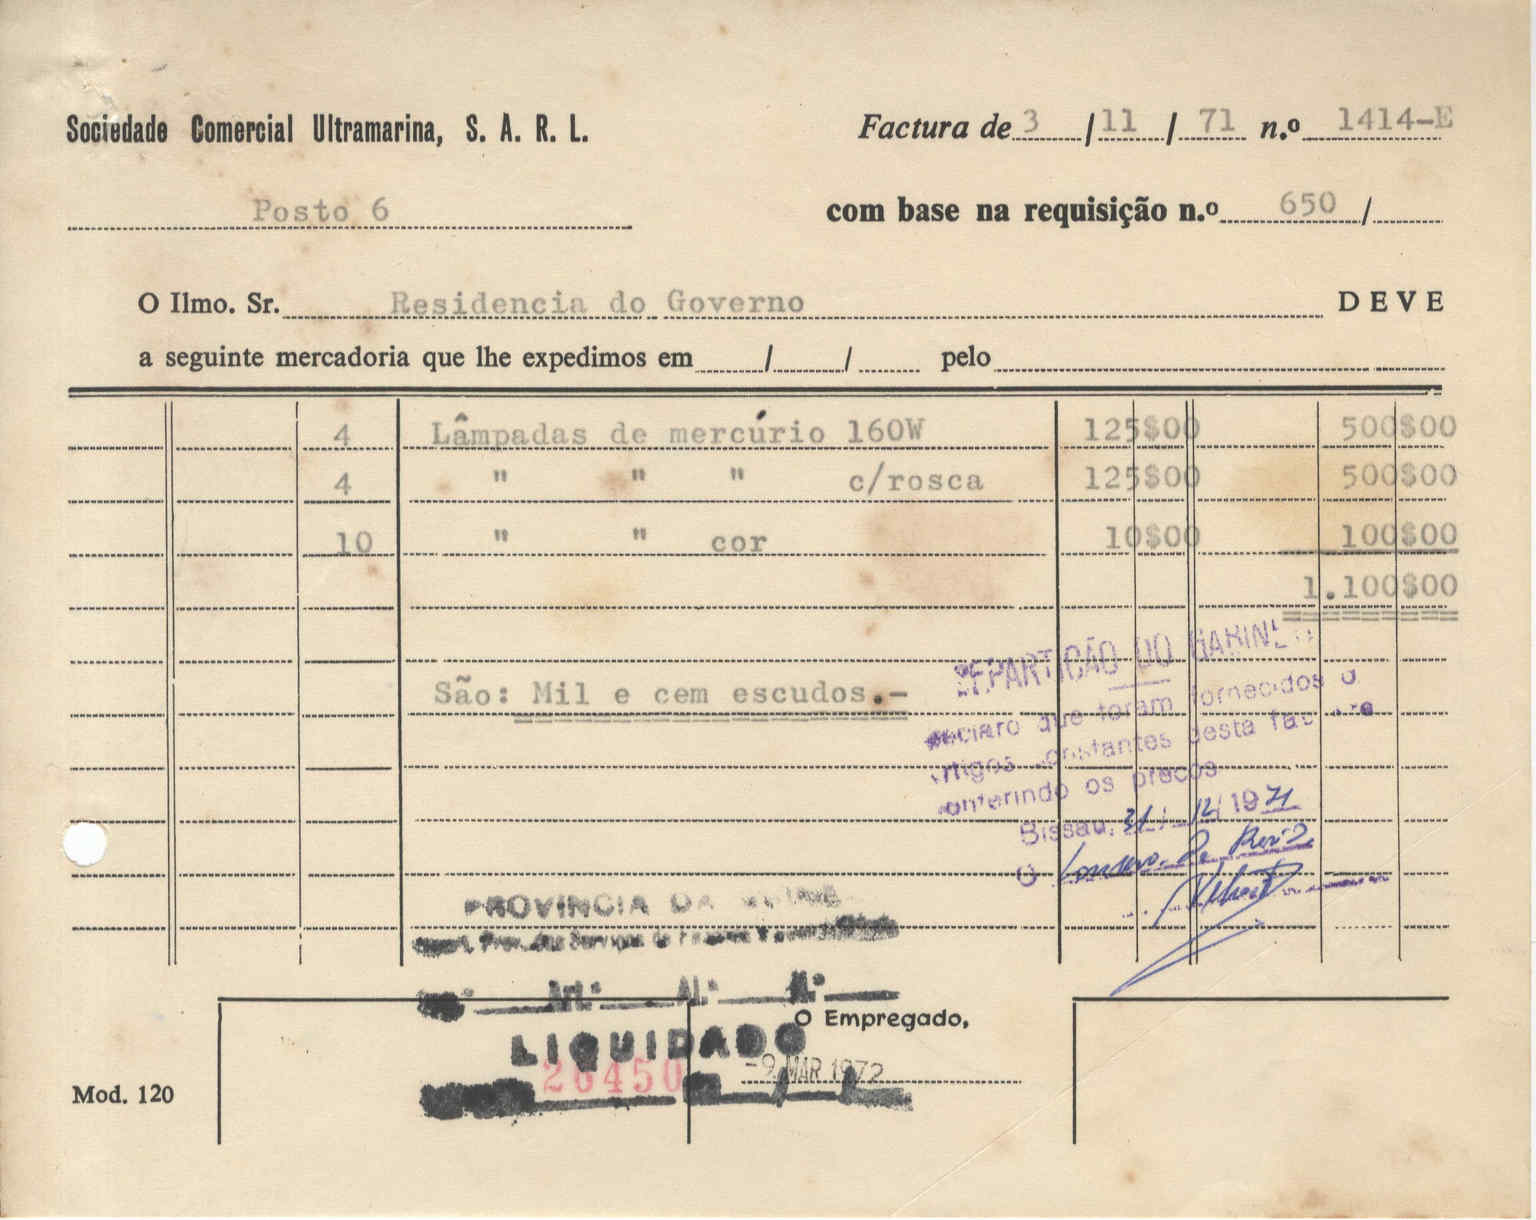 Sociedade Comercial Ultramarina, S. A. R. L.
Factura de 3 / 11 / 71 n.º 1414-E
Posto 6
com base na requisição n.º 650 /
O Ilmo. Sr. Residencia do Governo DEVE
a seguinte mercadoria que lhe expedimos em / / pelo
4 Lâmpadas de mercúrio 160W 125$00 500$00
4 " " " c/rosca 125$00 500$00
10 " " cor 10$00 100$00
1.100$00
São: Mil e cem escudos.-
REPARTIÇÃO DO GABINETE
declaro que foram fornecidos o
artigos constantes desta
conferindo os preços
Bissau, 31 / 12 / 1971
O
PROVINCIA DA
Art.º Al.º N.º
O Empregado,
LIQUIDADO
26450
-9. MAR 1972
Mod. 120